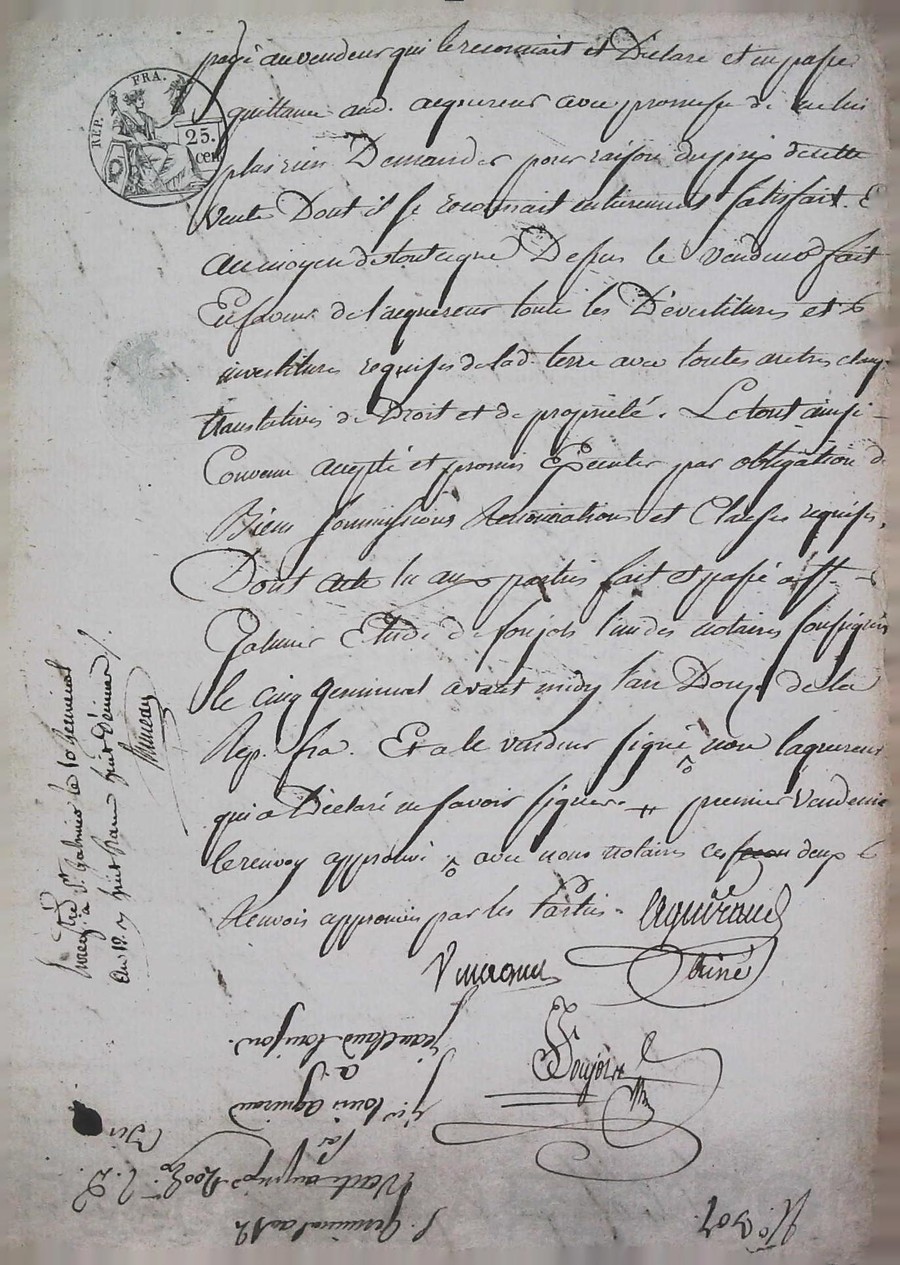 REP. FRA.
25.
cen
payé au vendeur qui le reconnait et Déclare et en passe
quittance aud. acquereur avec promesse de ne lui
plus rien Demander pour raison du prix de cette
vente Dont il se reconnait entierement satisfait. E
au moyen de tout ce que Dessus le vendeur fait
En faveur de l'acquereur toutes les Dévestitures et
investitures requises de lad. terre avec toutes autres claus
translatives de Droit et de propriété. Le tout ainsi
Convenu accepté et promis Executer par obligation de
Biens soumissions Renonciations et Clauses requises,
Dont acte lu aux parties fait et passé à St.
Galmier Etude de Soujols l'un des notaires soussignés
le cinq germinal avant midy l'an Douze de la
Rep. fra. Et a le vendeur signé non l'aquereur
qui a Déclaré ne savoir signer. premier Vendemie
le renvoy approuvé avec nous notaires ces deux
Renvois approuvés par les Parties.
Aguiraud
ainé
Soujols
Enregtré à St. Galmier le 10 germinal
an 12.
Jean Claud
à
Sr. Louis Aguiraud
par
Vente au prix
5. Germinal an 12
No. 307